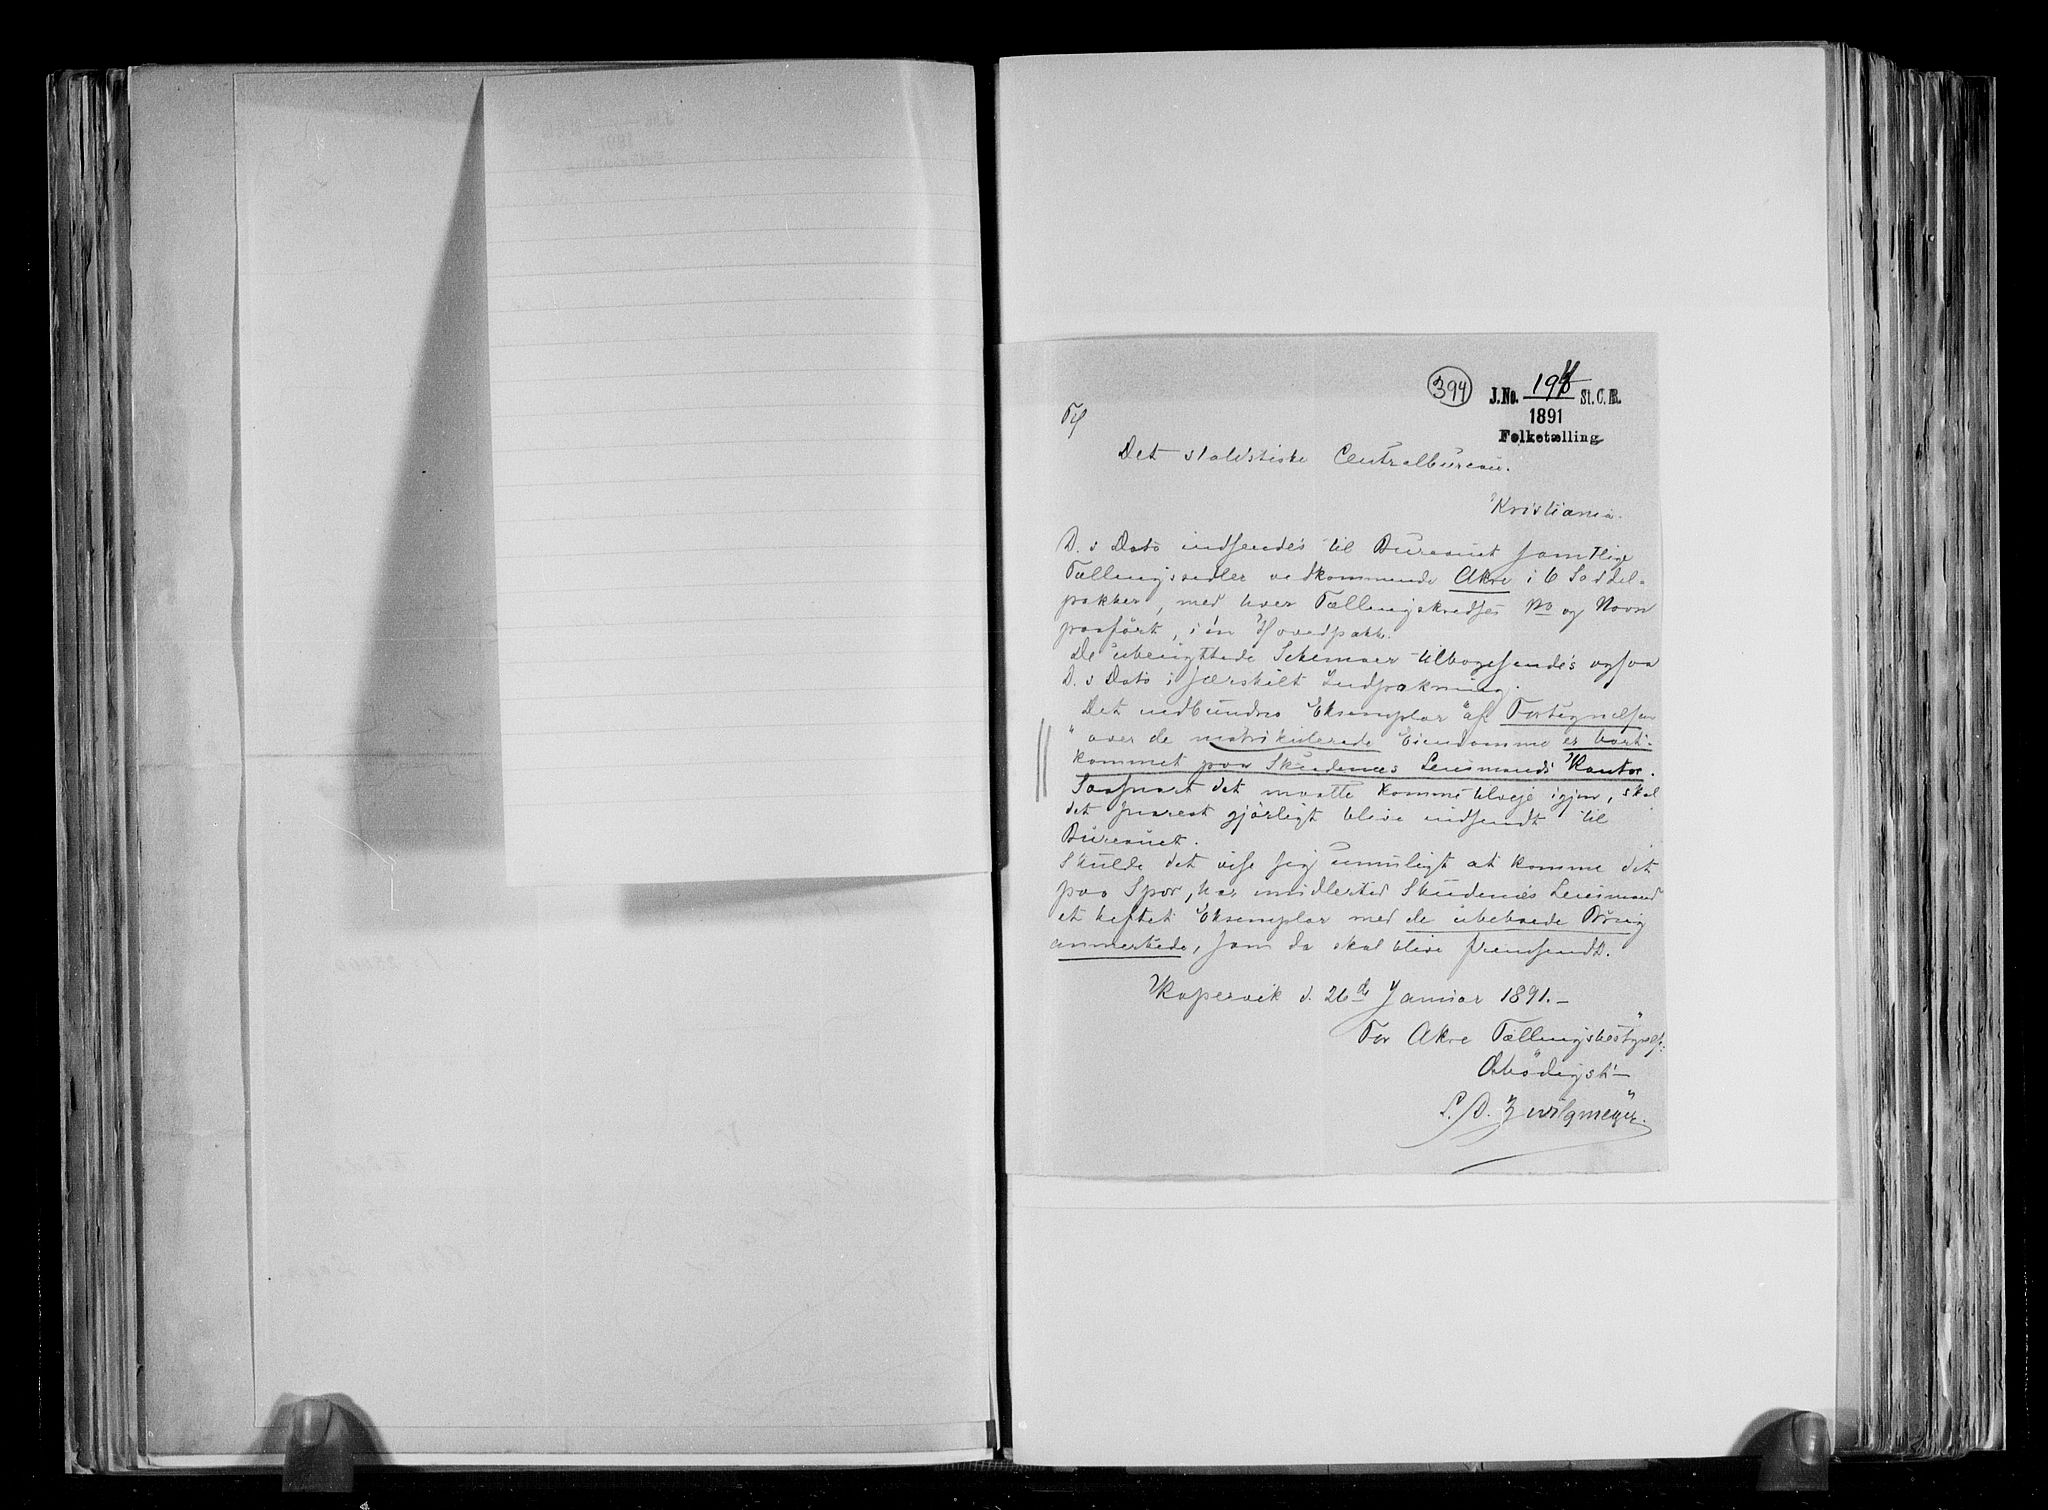 394
J.No. 194 St. C. B.
1891
Folketælling
Til
Det statistiske Centralbureau.
Kristiania.
D. s Dato indsendes til Bureauet samtlige
Tællingssedler vedkommende Akre i 6 Særdel-
pakker, med hver Tællingskredses No og Navn
paaført, i én Hovedpakke.
De ubenyttede Schemaer tilbagesendes ogsaa
D. s Dato i særskilt Indpakning.
Det indbundne Eksemplar af Fortegnelsen
over de matrikulerede Eiendomme er bort-
kommet paa Skudenæs Lensmands Kontor.
Saasnart det maatte komme tilveje igjen, skal
det snarest gjørligt blive indsendt til
Bureauet.
Skulde det vise sig umuligt at komme det
paa Spor, har imidlertid Skudenæs Lensmand
et heftet Eksemplar med de ubeboede Brug
anmerkede, som da skal blive fremsendt.
Kopervik d. 26de Januar 1891.-
For Akre Tællingsbestyrelse:
Ærbødigst
P. D. Zwilgmeyer.